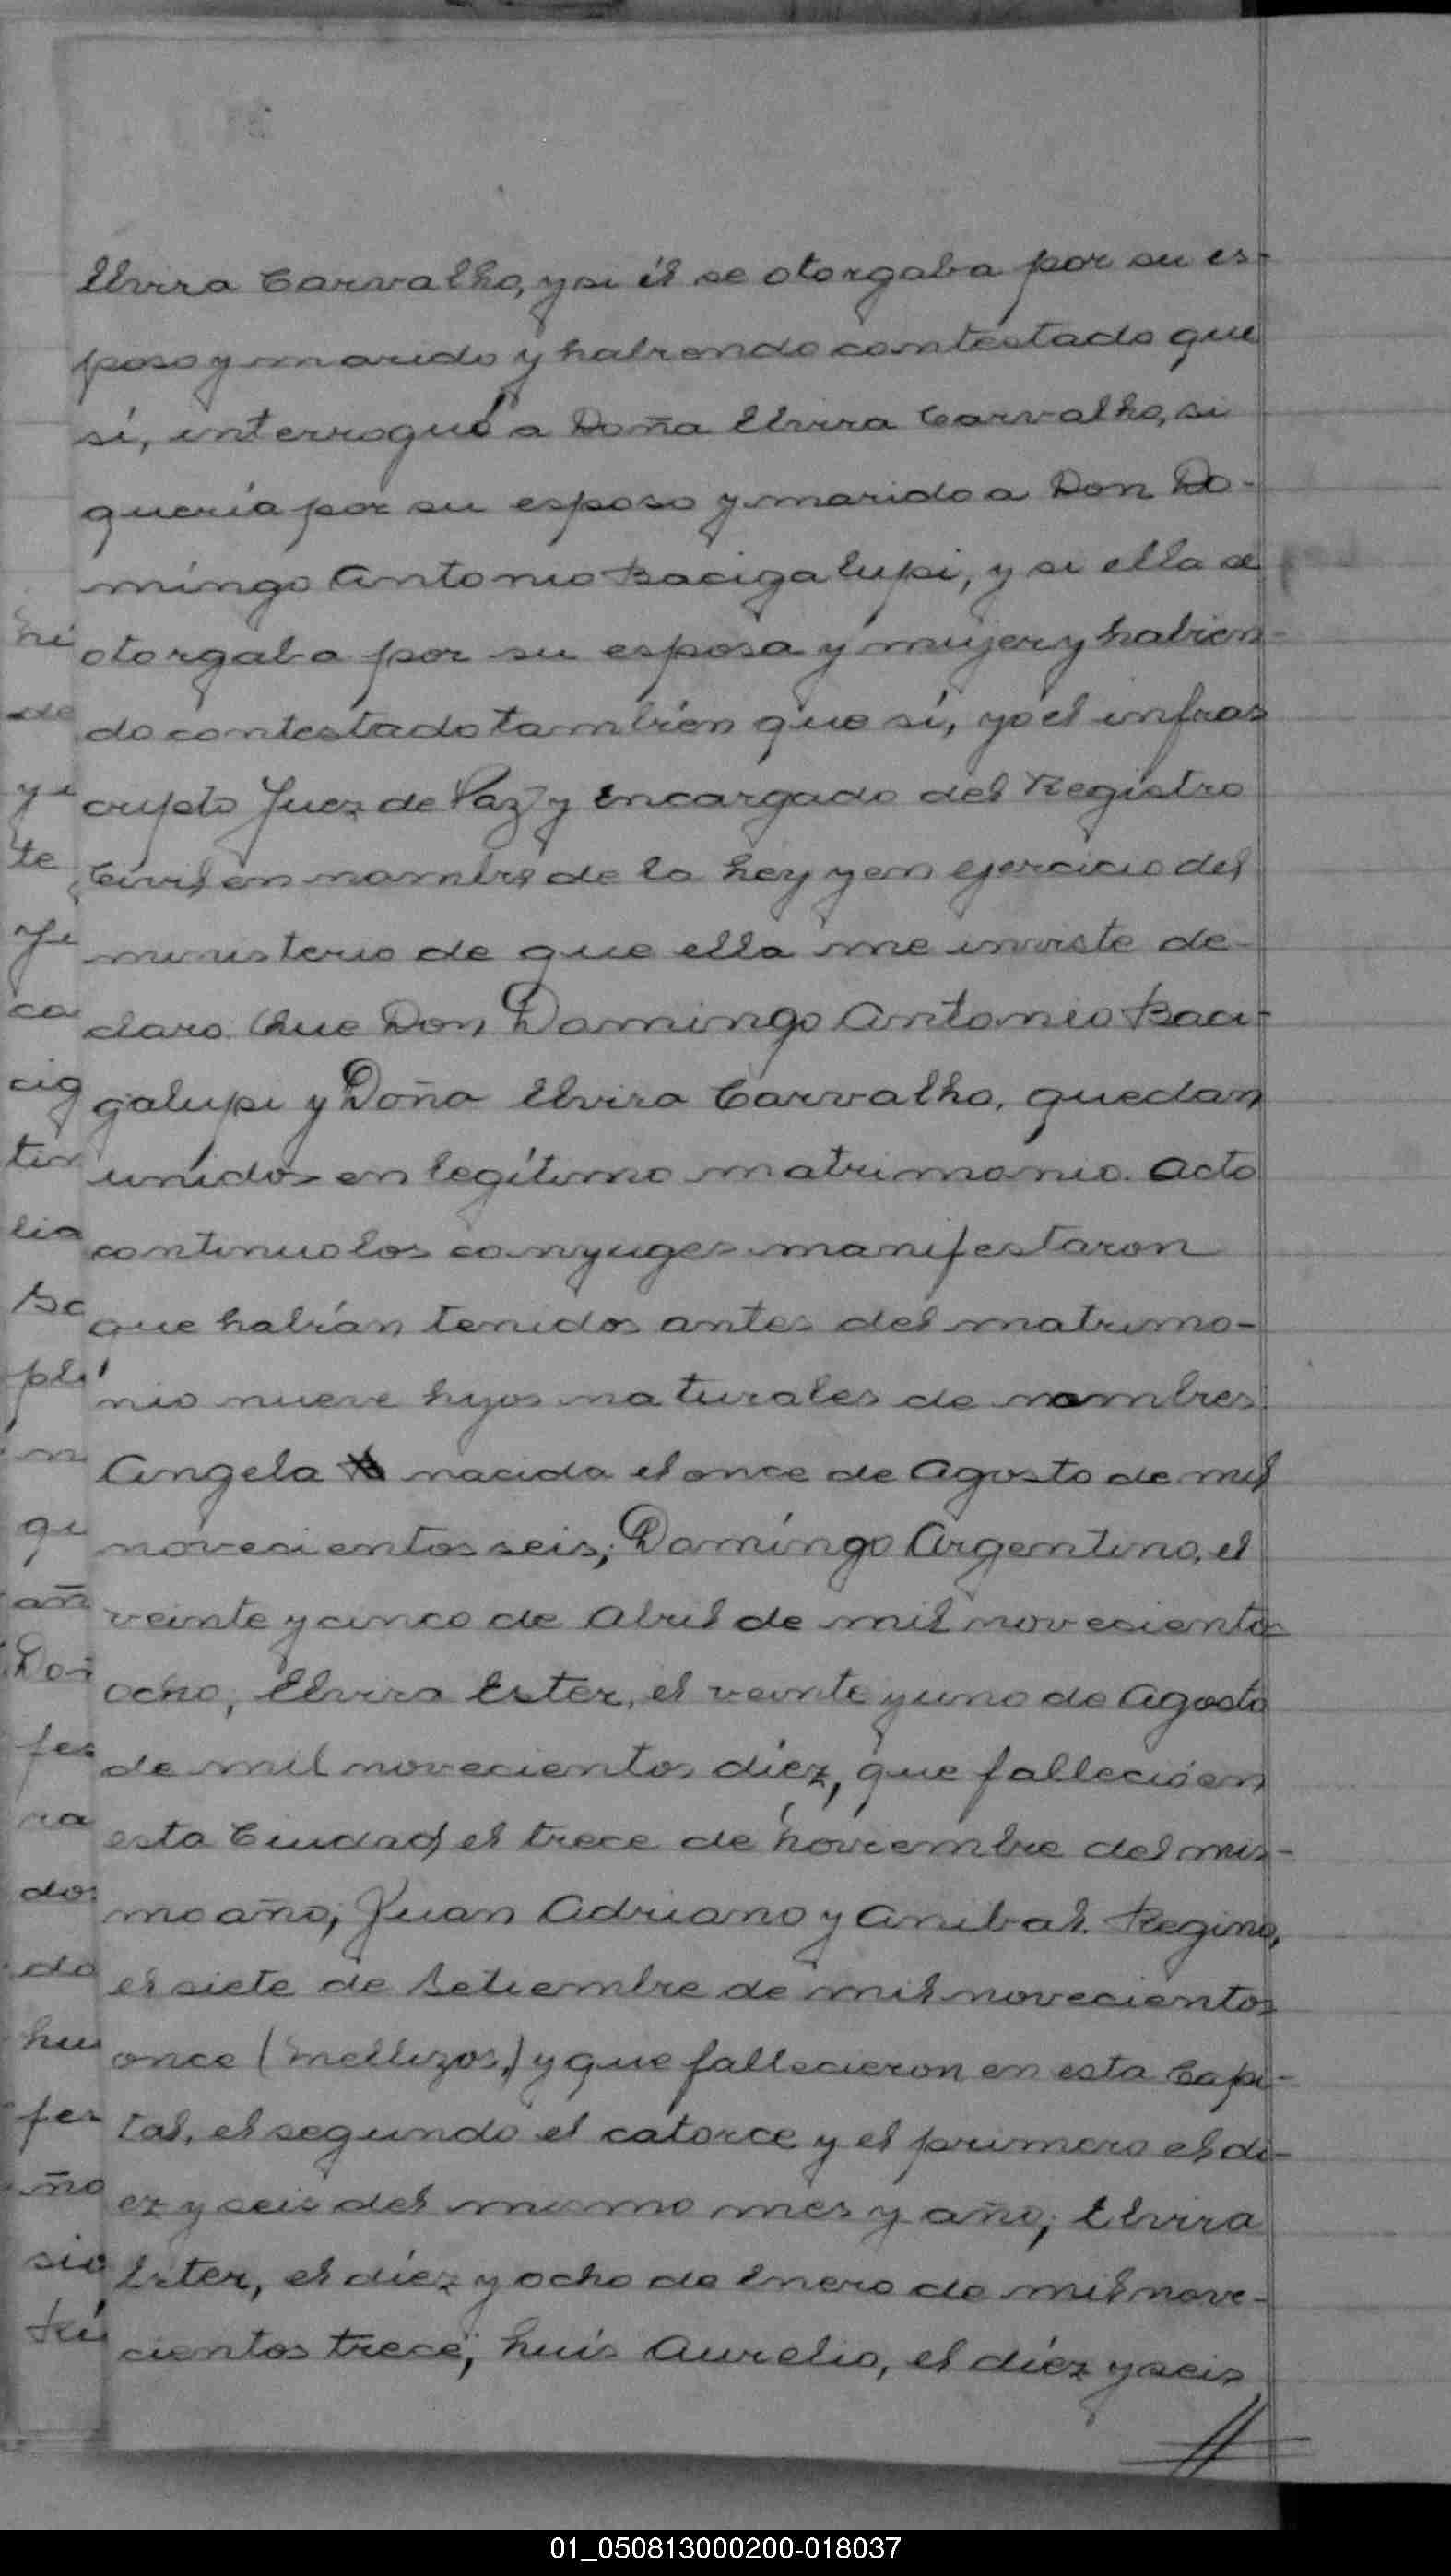 Elvira Carvalho, y si él se otorgaba por su es-
poso y marido y habiendo contestado que
sí, interrogué a Doña Elvira Carvalho, si
quería por su esposo y marido a Don Do-
mingo Antonio Bacigalupi, y si ella se
otorgaba por su esposa y mujer y habien-
do contestado también que sí, yo el infras
cripto Juez de Paz y Encargado del Registro
Civil, en nombre de la Ley y en ejercicio del
ministerio de que ella me inviste de-
claro: Que Don Domingo Antonio Baci-
galupi y Doña Elvira Carvalho, quedan
unidos en legítimo matrimonio. Acto
continuo los conyuges manifestaron
que habían tenidos antes del matrimo-
nio nueve hijos naturales de nombres:
Angela nacida el once de Agosto de mil
novecientos seis; Domingo Argentino, el
veinte y cinco de Abril de mil novecientos
ocho; Elvira Ester, el veinte y uno de Agosto
de mil novecientos diez, que falleció en
esta Ciudad, el trece de noviembre del mis-
mo año; Juan Adriano y Anibal Regino,
el siete de Setiembre de mil novecientos
once (mellizos,) y que fallecieron en esta Capi-
tal, el segundo el catorce y el primero el di-
ez y seis del mismo mes y año; Elvira
Ester, el diez y ocho de Enero de mil nove-
cientos trece; Luis Aurelio, el diez y seis
01_050813000200-018037